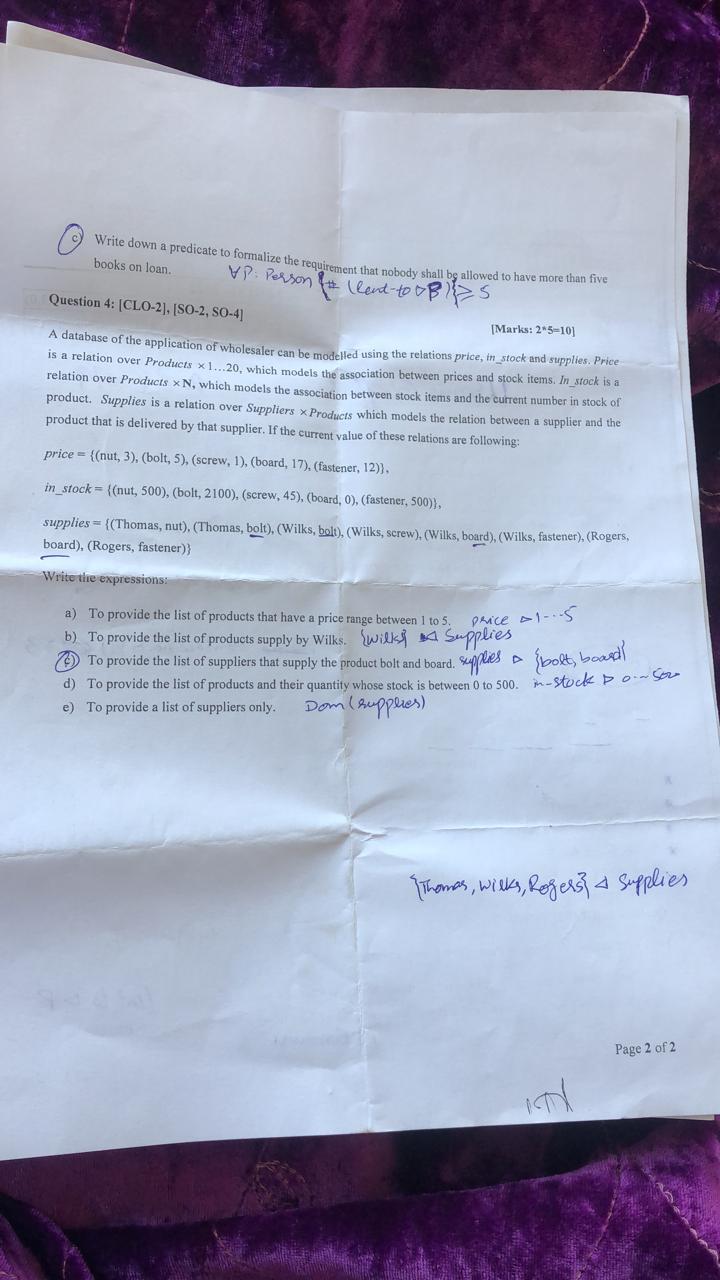 c) Write down a predicate to formalize the requirement that nobody shall be allowed to have more than five
books on loan. ∀P: Person {# (lend-to ▷ P)} ≥ 5
Question 4: [CLO-2], [SO-2, SO-4]
[Marks: 2*5=10]
A database of the application of wholesaler can be modelled using the relations price, in_stock and supplies. Price
is a relation over Products × 1…20, which models the association between prices and stock items. In_stock is a
relation over Products × N, which models the association between stock items and the current number in stock of
product. Supplies is a relation over Suppliers × Products which models the relation between a supplier and the
product that is delivered by that supplier. If the current value of these relations are following:
price = {(nut, 3), (bolt, 5), (screw, 1), (board, 17), (fastener, 12)},
in_stock = {(nut, 500), (bolt, 2100), (screw, 45), (board, 0), (fastener, 500)},
supplies = {(Thomas, nut), (Thomas, bolt), (Wilks, bolt), (Wilks, screw), (Wilks, board), (Wilks, fastener), (Rogers,
board), (Rogers, fastener)}
Write the expressions:
a) To provide the list of products that have a price range between 1 to 5. price ▷ 1---5
b) To provide the list of products supply by Wilks. {Wilks} ◁ Supplies
c) To provide the list of suppliers that supply the product bolt and board. supplies ▷ {bolt, board}
d) To provide the list of products and their quantity whose stock is between 0 to 500. in-stock ▷ 0---500
e) To provide a list of suppliers only. Dom (supplies)
{Thomas, Wilks, Rogers} ◁ Supplies
Page 2 of 2